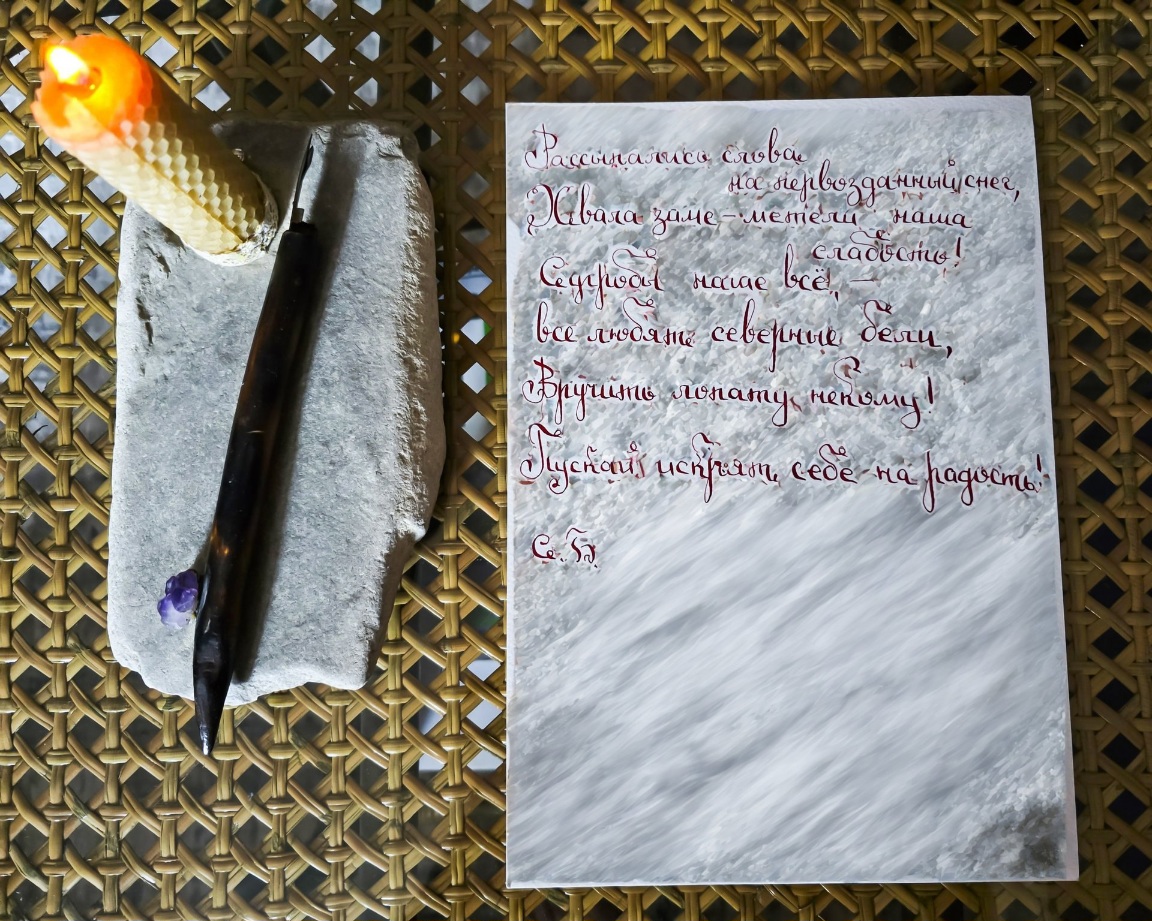 Рассыпались слова
на первозданный снег,
Хвала заме-метели наша
слабость!
Сугробы наше всё, —
все любят северные бели,
Вручить лопату некому!
Пускай искрят, себе на радость!
С. Б.